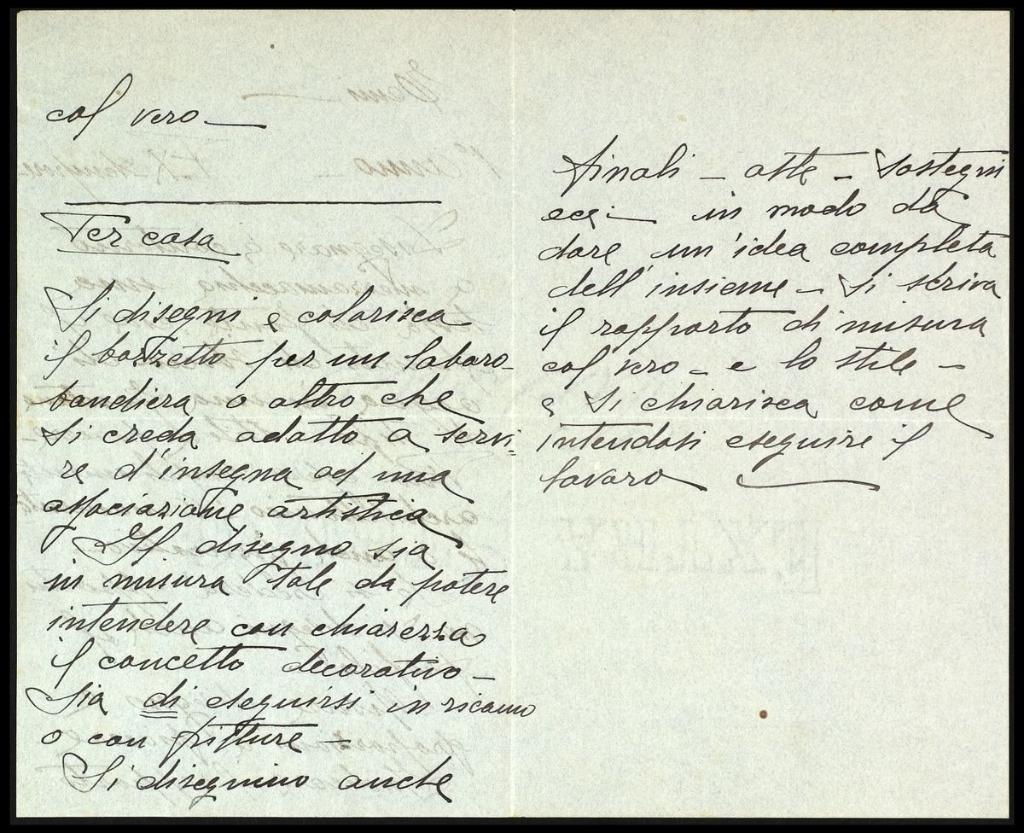 col vero —
Per casa
Si disegni e colorisca
il bozzetto per un labaro-
bandiera o altro che
si creda adatto a servi-
re d'insegna ad una
associazione artistica
Il disegno sia
in misura tale da potere
intendere con chiarezza
il concetto decorativo —
sia di eseguirsi in ricamo
o con pitture —
Si disegnino anche
finali — aste — sostegni
ecc — in modo da
dare un'idea completa
dell'insieme — Si scriva
il rapporto di misura
col vero — e lo stile —
e si chiarisca come
intendasi eseguire il
lavoro —